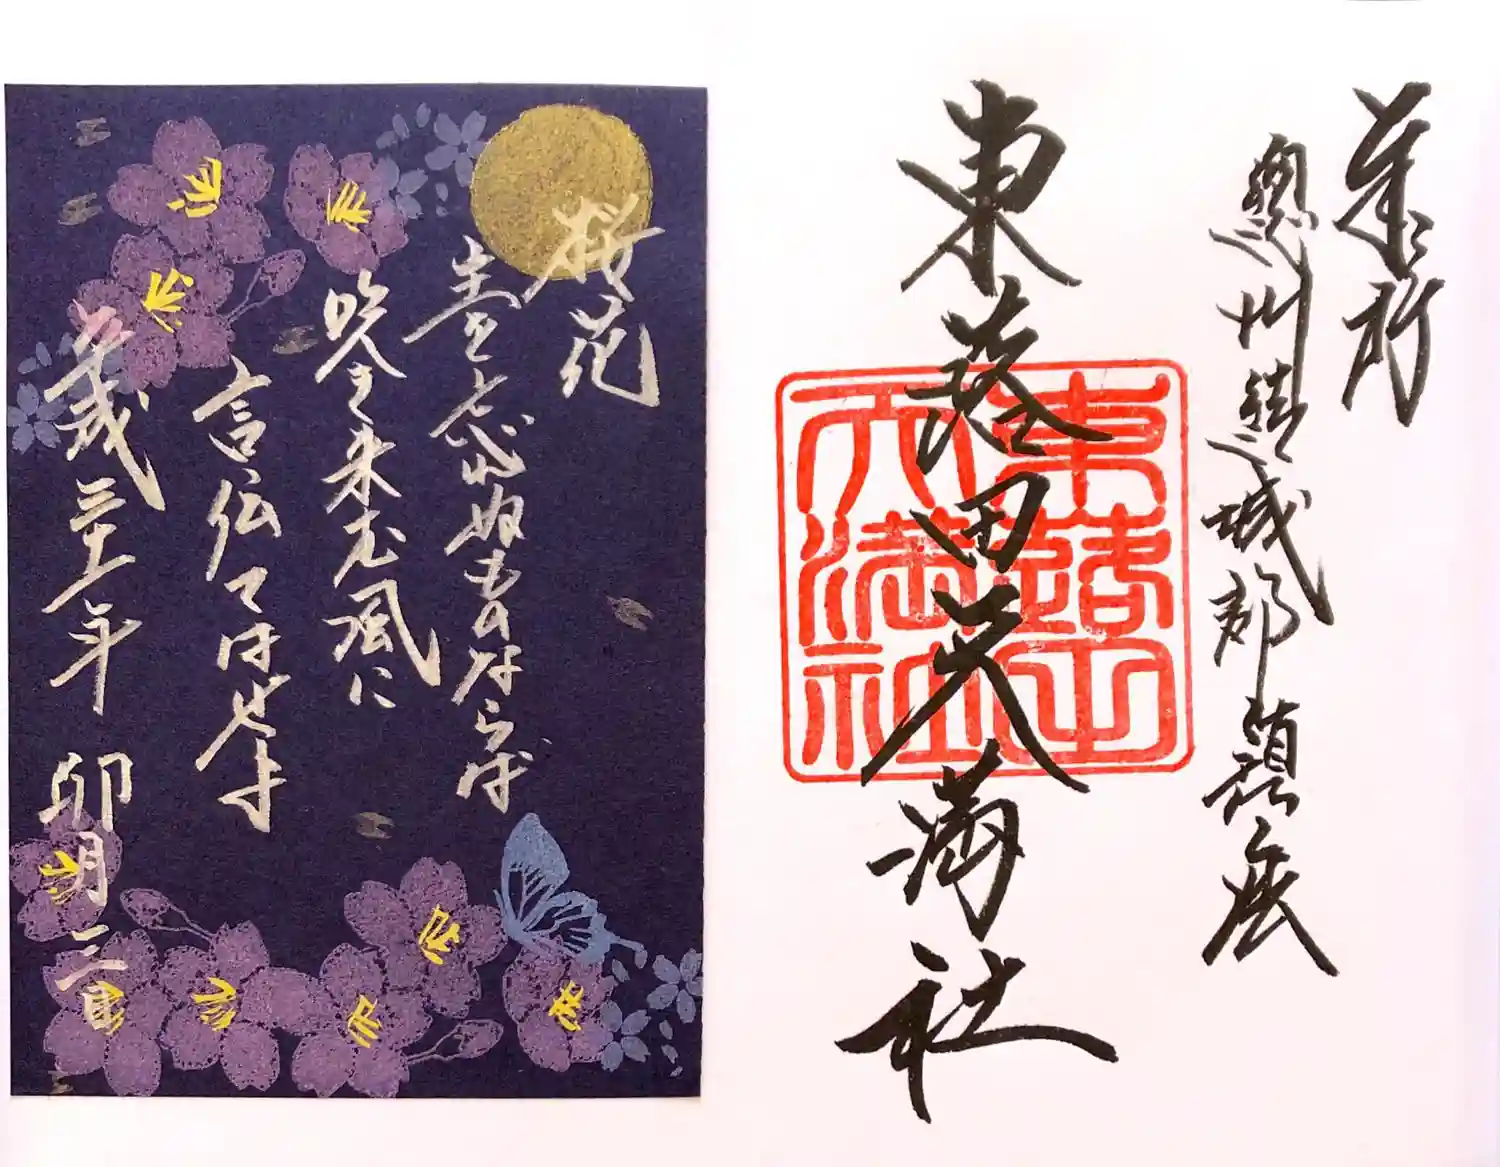 奉祈
總州結城郡鎮座
東蕗田天満社
東蕗田天満社
桜花
主を忘れぬものならば
吹き来む風に
言伝てはせよ
平成三十一年 卯月 三日